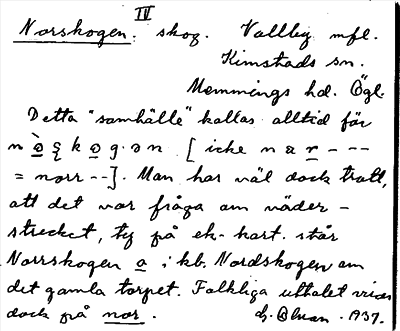 IV
Norskogen: skog. Vallby mfl.
Kimstads sn.
Memmings hd. Ögl.
Detta "samhälle" kallas alltid för
[icke
= norr --]. Man har väl dock trott,
att det var fråga om väder-
strecket, ty på ek. kart. står
Norrskogen a i kb. Nordskogen om
det gamla torpet. Folkliga uttalet visar
dock på nor. 1937.